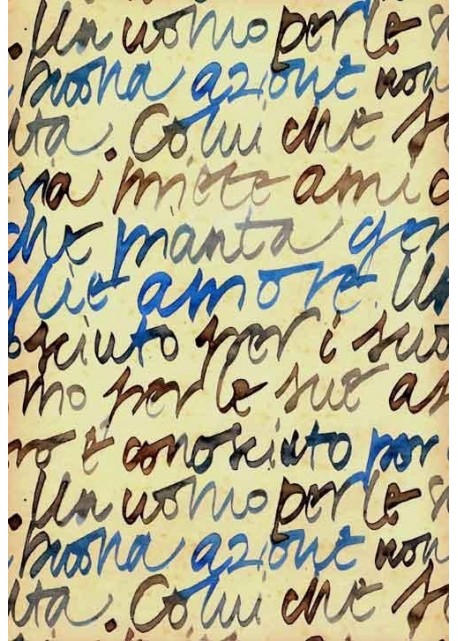 . Un uomo per le s
buona azione non
ta. Colui che se
sia miete amic
che pianta gen
glie amore. Un
osciuto per i suo
mo per le sue az
ro è conosciuto por
. Un uomo per le s
buona azione non
ta. Colui che se